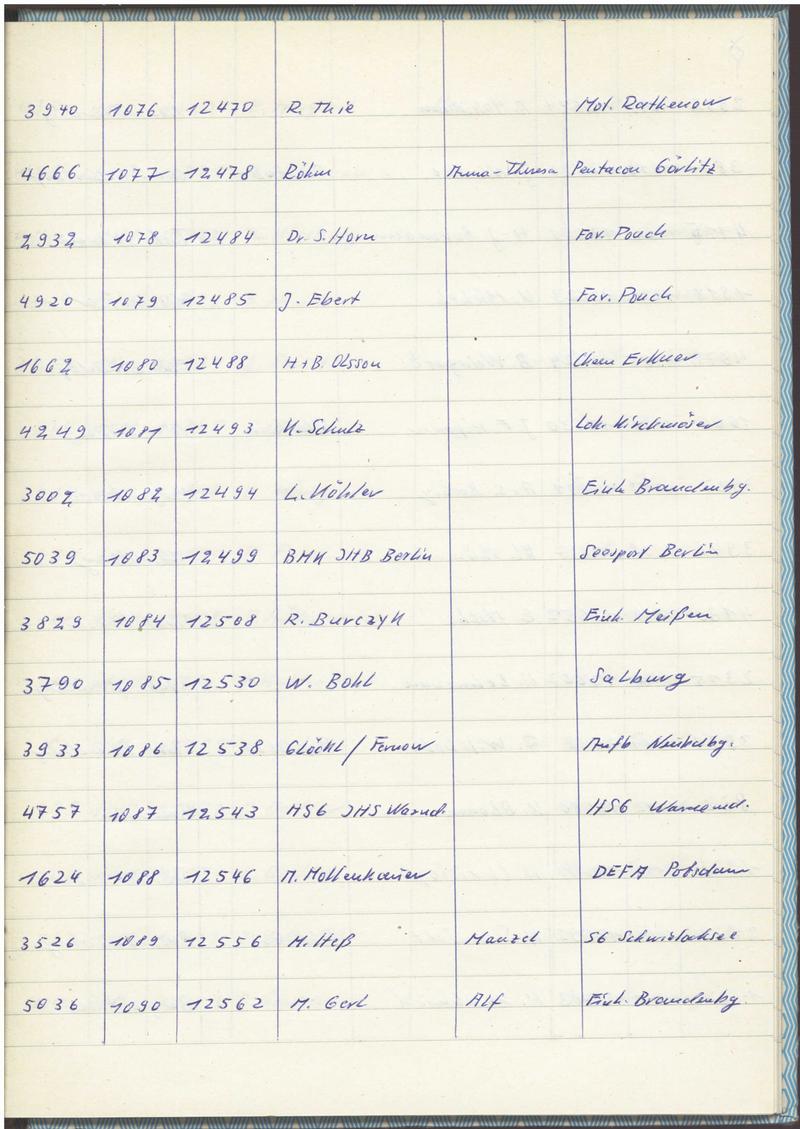 3940 1076 12470 R. Thie Mot. Rathenow
4666 1077 12478 Röhm Anna-Theresa Pentacon Görlitz
2932 1078 12484 Dr. S. Horn Fav. Pouch
4920 1079 12485 J. Ebert Fav. Pouch
1662 1080 12488 H+B. Olsson Chem Erkner
4249 1081 12493 K. Schulz Lok. Kirchmöser
3002 1082 12494 L. Köhler Einh. Brandenbg.
5039 1083 12499 BMK IHB Berlin Seesport Berlin
3829 1084 12508 R. Burczyk Einh. Meißen
3790 1085 12530 W. Bohl Salburg
3933 1086 12538 Glöckl / Fernow Aufb
4757 1087 12543 HSG IHS Warnd. HSG
1624 1088 12546 M. Mollenhauer DEFA Potsdam
3526 1089 12556 M. Heß Manzel SG Schwielochsee
5036 1090 12562 M. Gerl Alf Einh. Brandenbg.